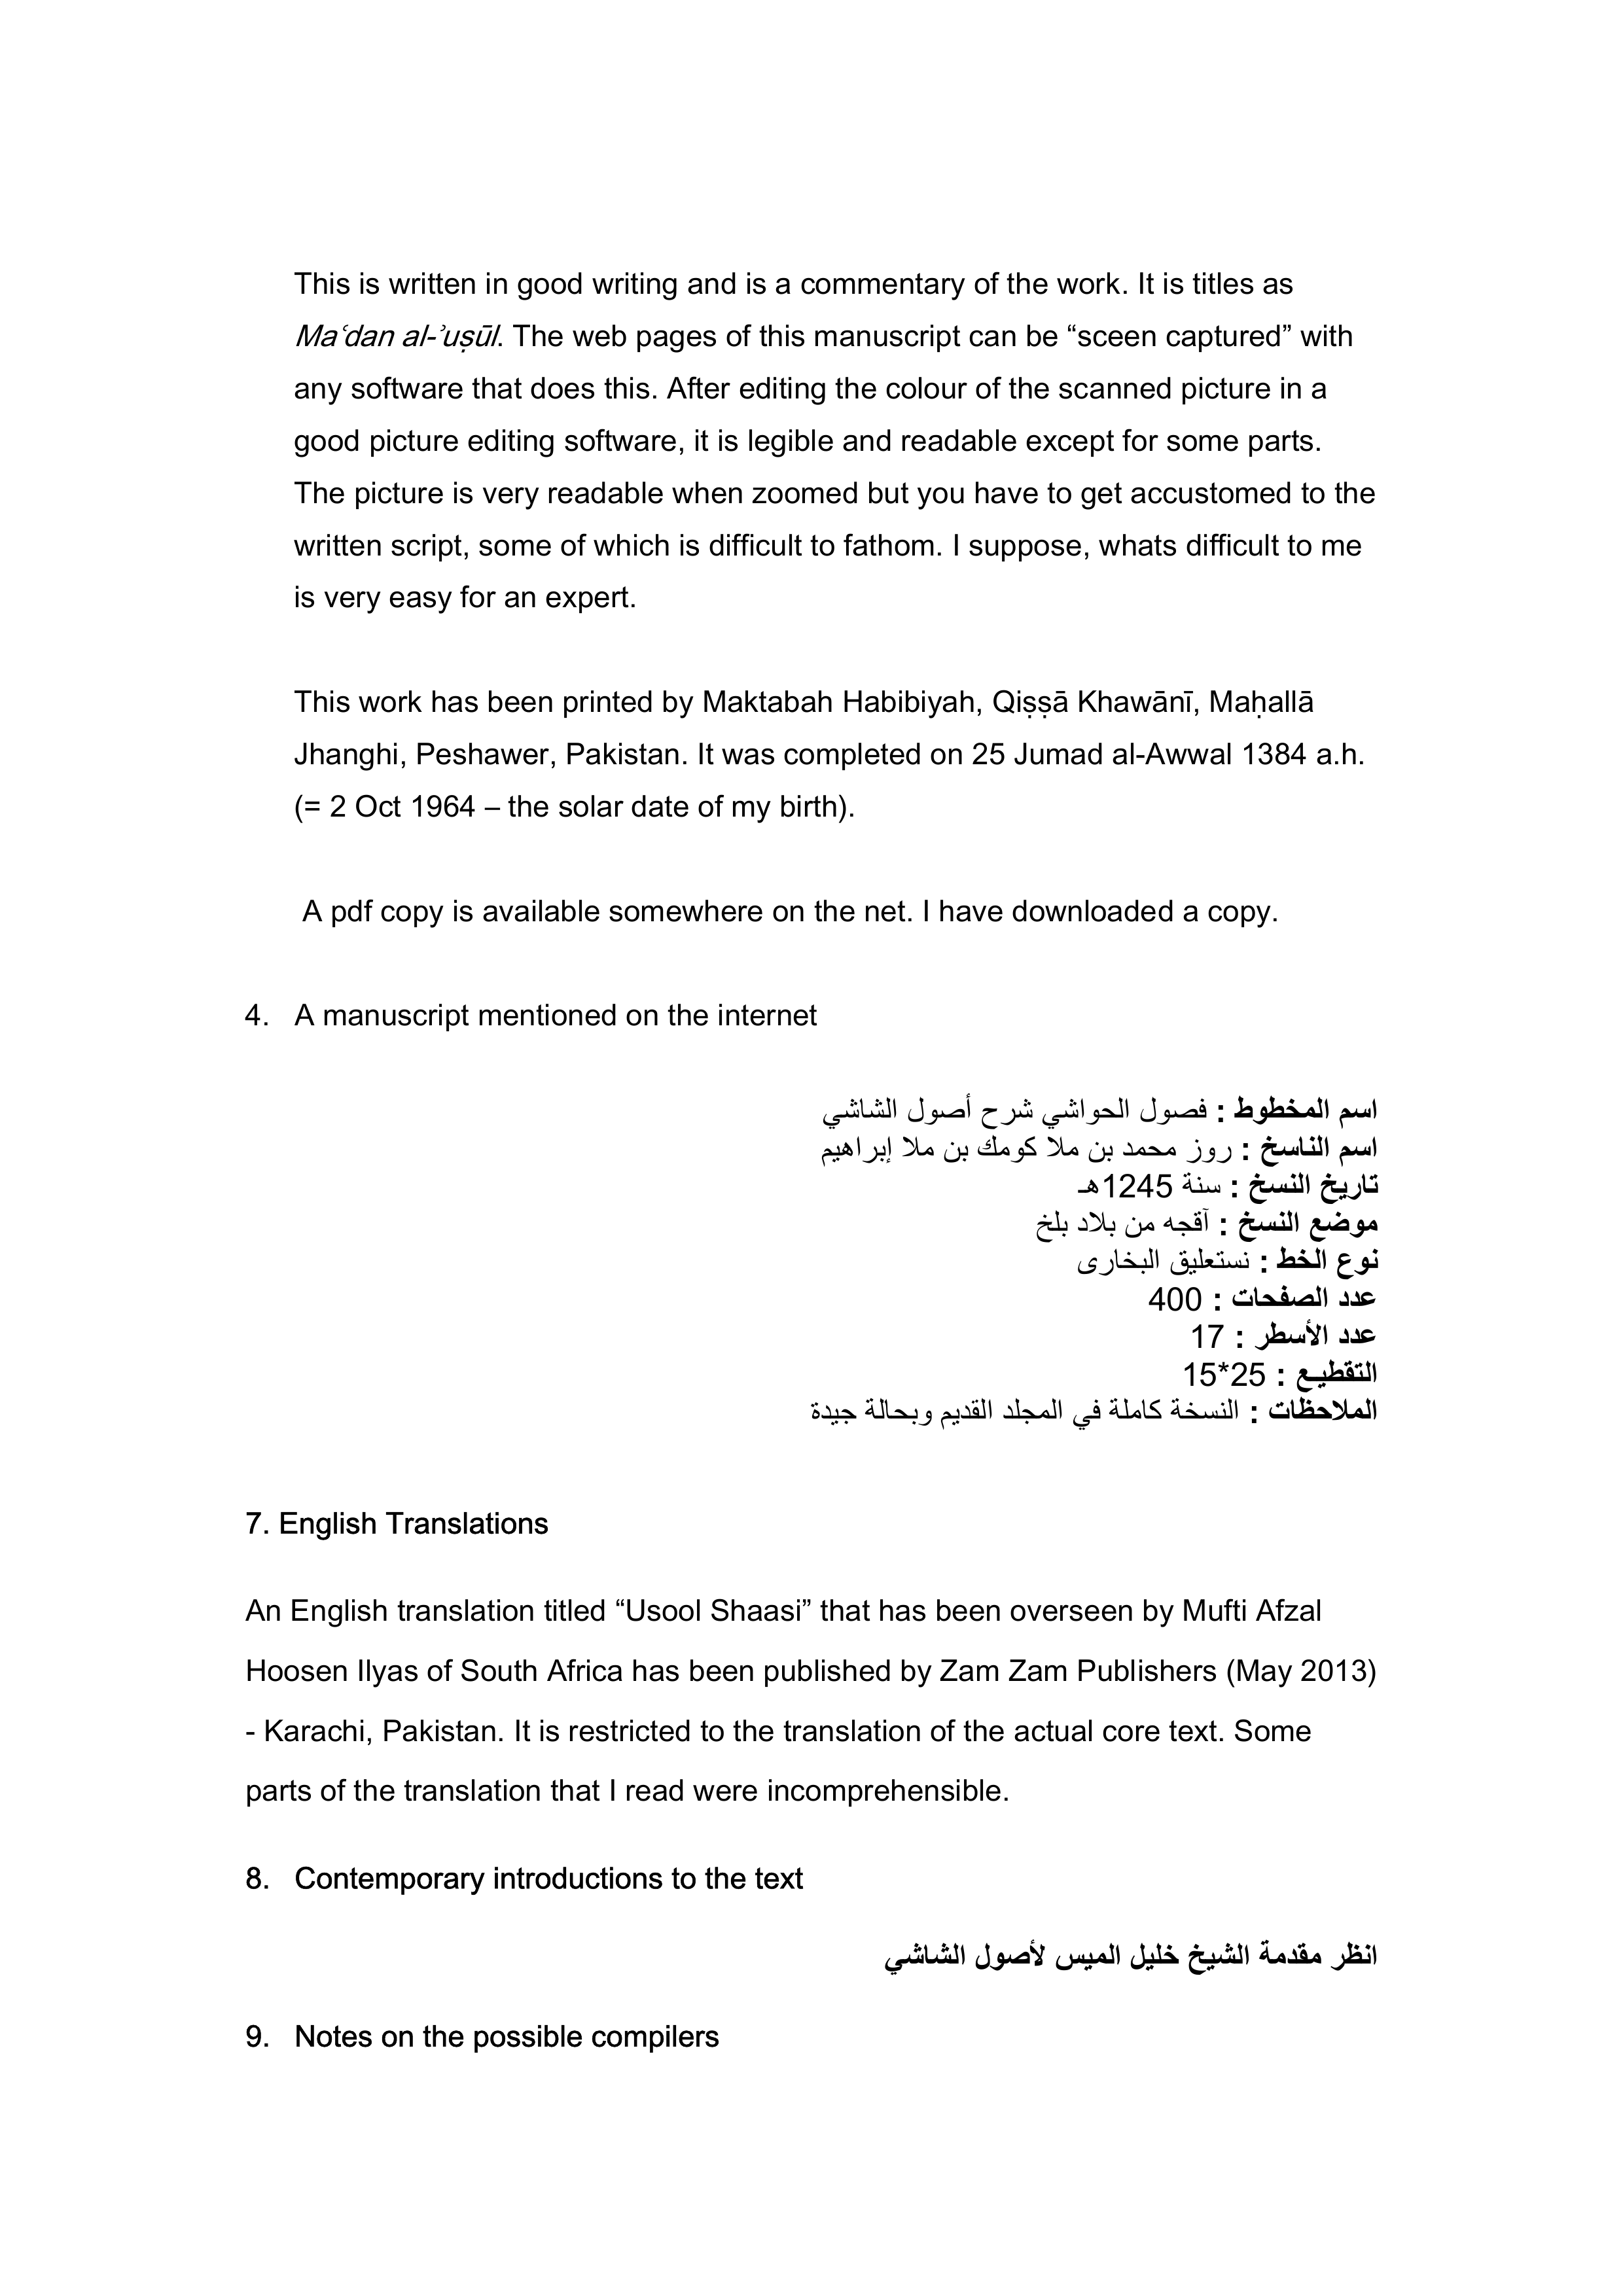 This is written in good writing and is a commentary of the work. It is titles as
Maʿdan al-ʾuṣūl. The web pages of this manuscript can be “sceen captured” with
any software that does this. After editing the colour of the scanned picture in a
good picture editing software, it is legible and readable except for some parts.
The picture is very readable when zoomed but you have to get accustomed to the
written script, some of which is difficult to fathom. I suppose, whats difficult to me
is very easy for an expert.
This work has been printed by Maktabah Habibiyah, Qiṣṣā Khawānī, Maḥallā
Jhanghi, Peshawer, Pakistan. It was completed on 25 Jumad al-Awwal 1384 a.h.
(= 2 Oct 1964 – the solar date of my birth).
A pdf copy is available somewhere on the net. I have downloaded a copy.
4. A manuscript mentioned on the internet
اسم المخطوط : فصول الحواشي شرح أصول الشاشي
اسم الناسخ : روز محمد بن ملا كومك بن ملا إبراهيم
تاريخ النسخ : سنة 1245هـ
موضع النسخ : آقجه من بلاد بلخ
نوع الخط : نستعليق البخارى
عدد الصفحات : 400
عدد الأسطر : 17
التقطيـع : 25*15
الملاحظات : النسخة كاملة في المجلد القديم وبحالة جيدة
7. English Translations
An English translation titled “Usool Shaasi” that has been overseen by Mufti Afzal
Hoosen Ilyas of South Africa has been published by Zam Zam Publishers (May 2013)
- Karachi, Pakistan. It is restricted to the translation of the actual core text. Some
parts of the translation that I read were incomprehensible.
8. Contemporary introductions to the text
انظر مقدمة الشيخ خليل الميس لأصول الشاشي
9. Notes on the possible compilers